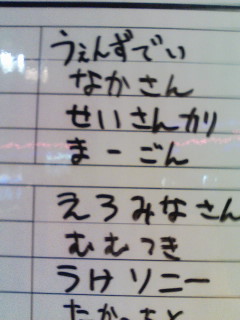 うぇんずでい
なかさん
せいさんカリ
まーごん
えろみなさん
むむつき
うけソニー